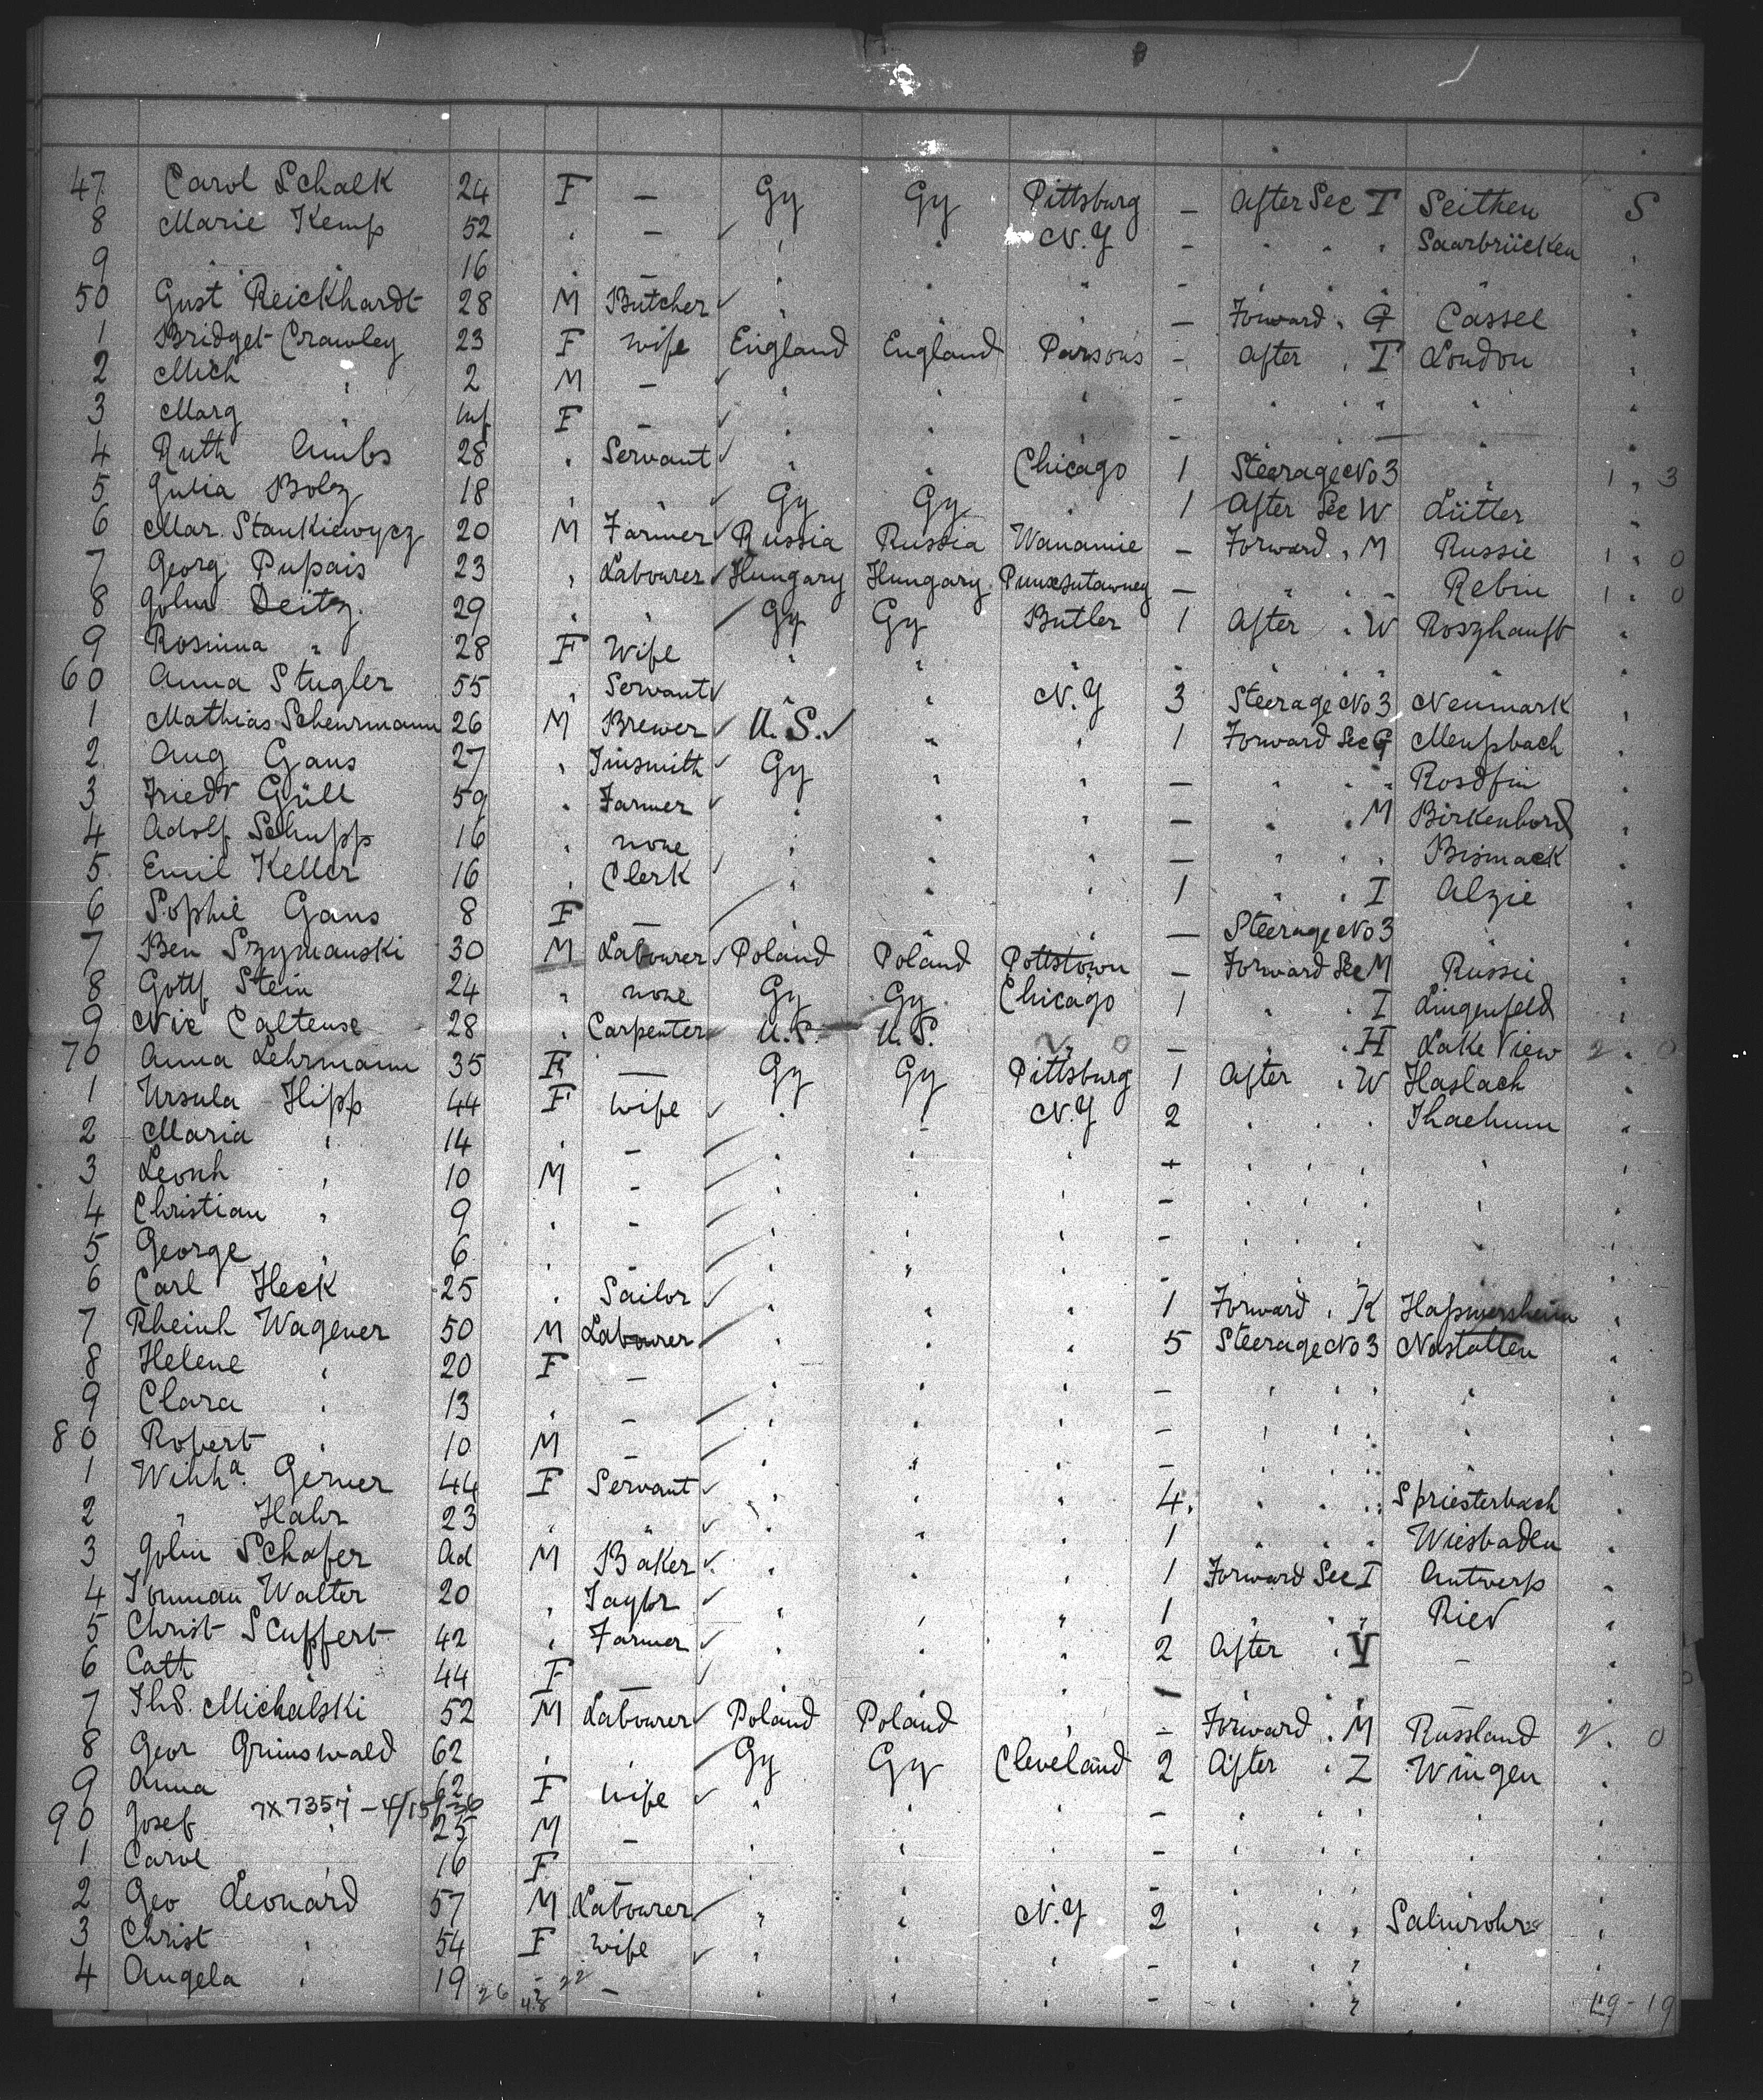 47 Carol Schalk 24 F — Gy Gy Pittsburg — After Sec T Seithen S
8 Marie Kemp 52 " — " " N.Y — " " " Saarbrücken "
9 " " 16 " — " " " - " " " " "
50 Gust Reickhardt 28 M Butcher " " " — Forward " G Cassel "
1 Bridget Crawley 23 F wife England England Parsons - After " T London "
2 Mich " 2 M — " " " - " " " " "
3 Marg " Inf F — " " " - " " — " "
4 Ruth Ambs 28 " Servant " " Chicago 1 Steerage No 3 " 1 " 3
5 Julia Bolz 18 " " Gy Gy " 1 After Sec W Lütter "
6 Mar. Stankiewycz 20 M Farmer Russia Russia Wanamie — Forward " M Russie 1 " 0
7 Georg Pupais 23 " Labourer Hungary Hungary Punxsutawney — " " - Rebin 1 " 0
8 John Deitz 29 " " Gy Gy Butler 1 After " W Roszhauft "
9 Rosinna " 28 F Wife " " " " " " " "
60 Anna Stugler 55 " Servant " " N.Y 3 Steerage No 3 Neumark "
1 Mathias Scheurmann 26 M Brewer U.S. " " 1 Forward Sec G Mempbach "
2 Aug Gans 27 " Tinsmith Gy " " — " " " Rosdfin "
3 Friedr Güll 59 " Farmer " " " — " " M Birkenbord "
4 Adolf Schupp 16 " none " " " — " " " Bismack "
5 Emil Keller 16 " Clerk " " " 1 " " I Alzie "
6 Sophie Gans 8 F — " " " — Steerage No 3 " "
7 Ben Szymanski 30 M Labourer Poland Poland Pottstown — Forward Sec M Russie "
8 Gottf Stein 24 " none Gy Gy Chicago 1 " " I Lingenfeld "
9 Nic Caltense 28 " Carpenter U.S. U.S. — " " H Lake View 2 " 0
70 Anna Lehrmann 35 F — Gy Gy Pittsburg 1 After " W Haslach "
1 Ursula Hipp 44 F wife " " N.Y 2 " " " Thaehum "
2 Maria " 14 " — " " " + " " " " "
3 Leonh " 10 M - " " " - " " " " "
4 Christian " 9 " - " " " - " " " " "
5 George " 6 " - " " " - " " " " "
6 Carl Heck 25 " Sailor " " " 1 Forward " K Hapmersheim "
7 Rheinh Wagener 50 M Labourer " " " 5 Steerage No 3 Nastatten "
8 Helene " 20 F — " " " — " " " " "
9 Clara " 13 " — " " " — " " " " "
80 Robert " 10 M — " " " — " " " " "
1 Wilh.a Gerner 44 F Servant " " " 4 " " " Spriesterbach "
2 " Hahr 23 " " " " " 1 " " " Wiesbaden "
3 John Schafer Ad M Baker " " " 1 Forward Sec I Antwerp "
4 Torman Walter 20 " Taylor " " " 1 " " " Riev "
5 Christ Scuffert 42 " Farmer " " " 2 After " Y — "
6 Cath " 44 F — " " " — " " " "
7 Ths. Michalski 52 M Labourer Poland Poland " — Forward " M Russland 2 " 0
8 Geor Grunswald 62 " " Gy Gy Cleveland 2 After " Z Wingen "
9 Anna 62 F wife " " " - " " " " "
90 Josef " 7X7357 - 4/15/36 25 M — " " " - " " " " "
1 Carol " 16 F " " " - " " " " "
2 Geo Leonard 57 M Labourer " " N.Y 2 " " " Salmrohr "
3 Christ " 54 F wife " " " - " " " " "
4 Angela " 19 26 48 22 — " " " - " " " " 19-19